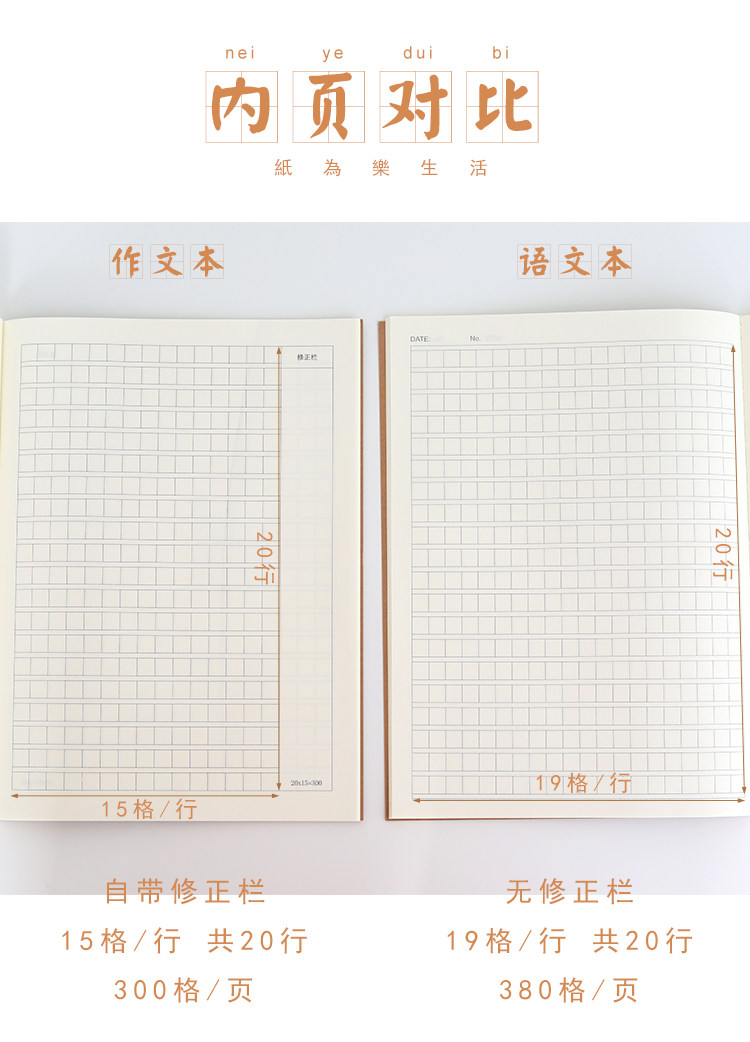 nei ye dui bi
内页对比
紙為樂生活
作文本
语文本
修正栏
20行
20x15=300
15格/行
DATE:
No.
20行
19格/行
自带修正栏
15格/行 共20行
300格/页
无修正栏
19格/行 共20行
380格/页